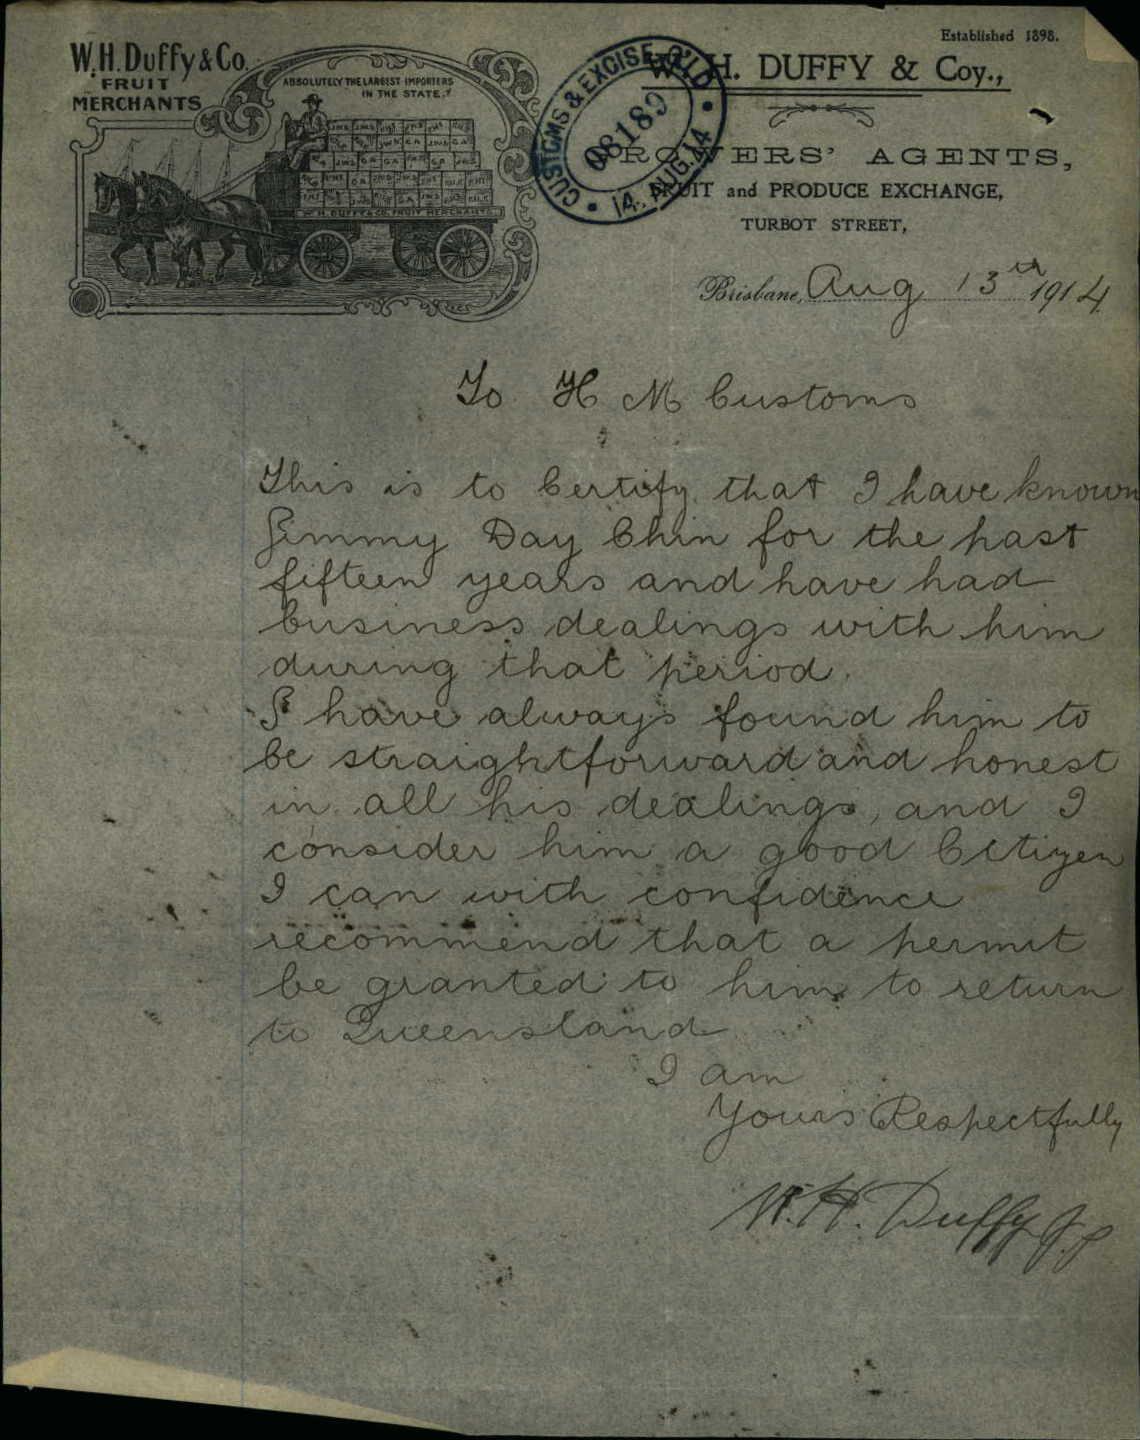 Established 1898.
W.H. Duffy & Co.
FRUIT
MERCHANTS
ABSOLUTELY THE LARGEST IMPORTERS
IN THE STATE.
W. H. DUFFY & CO. FRUIT MERCHANTS
CUSTOMS & EXCISE Q'LD
08189
14. AUG. 14
W. H. DUFFY & Coy.,
GROWERS' AGENTS,
FRUIT and PRODUCE EXCHANGE,
TURBOT STREET,
Brisbane, Aug 13th 1914
To H M Customs
This is to Certify that I have known
Jimmy Day Chin for the past
fifteen years and have had
business dealings with him
during that period.
I have always found him to
be straightforward and honest
in all his dealings, and I
consider him a good Citizen
I can with confidence
recommend that a permit
be granted to him to return
to Queensland
I am
Yours Respectfully
W. H. Duffy J.P